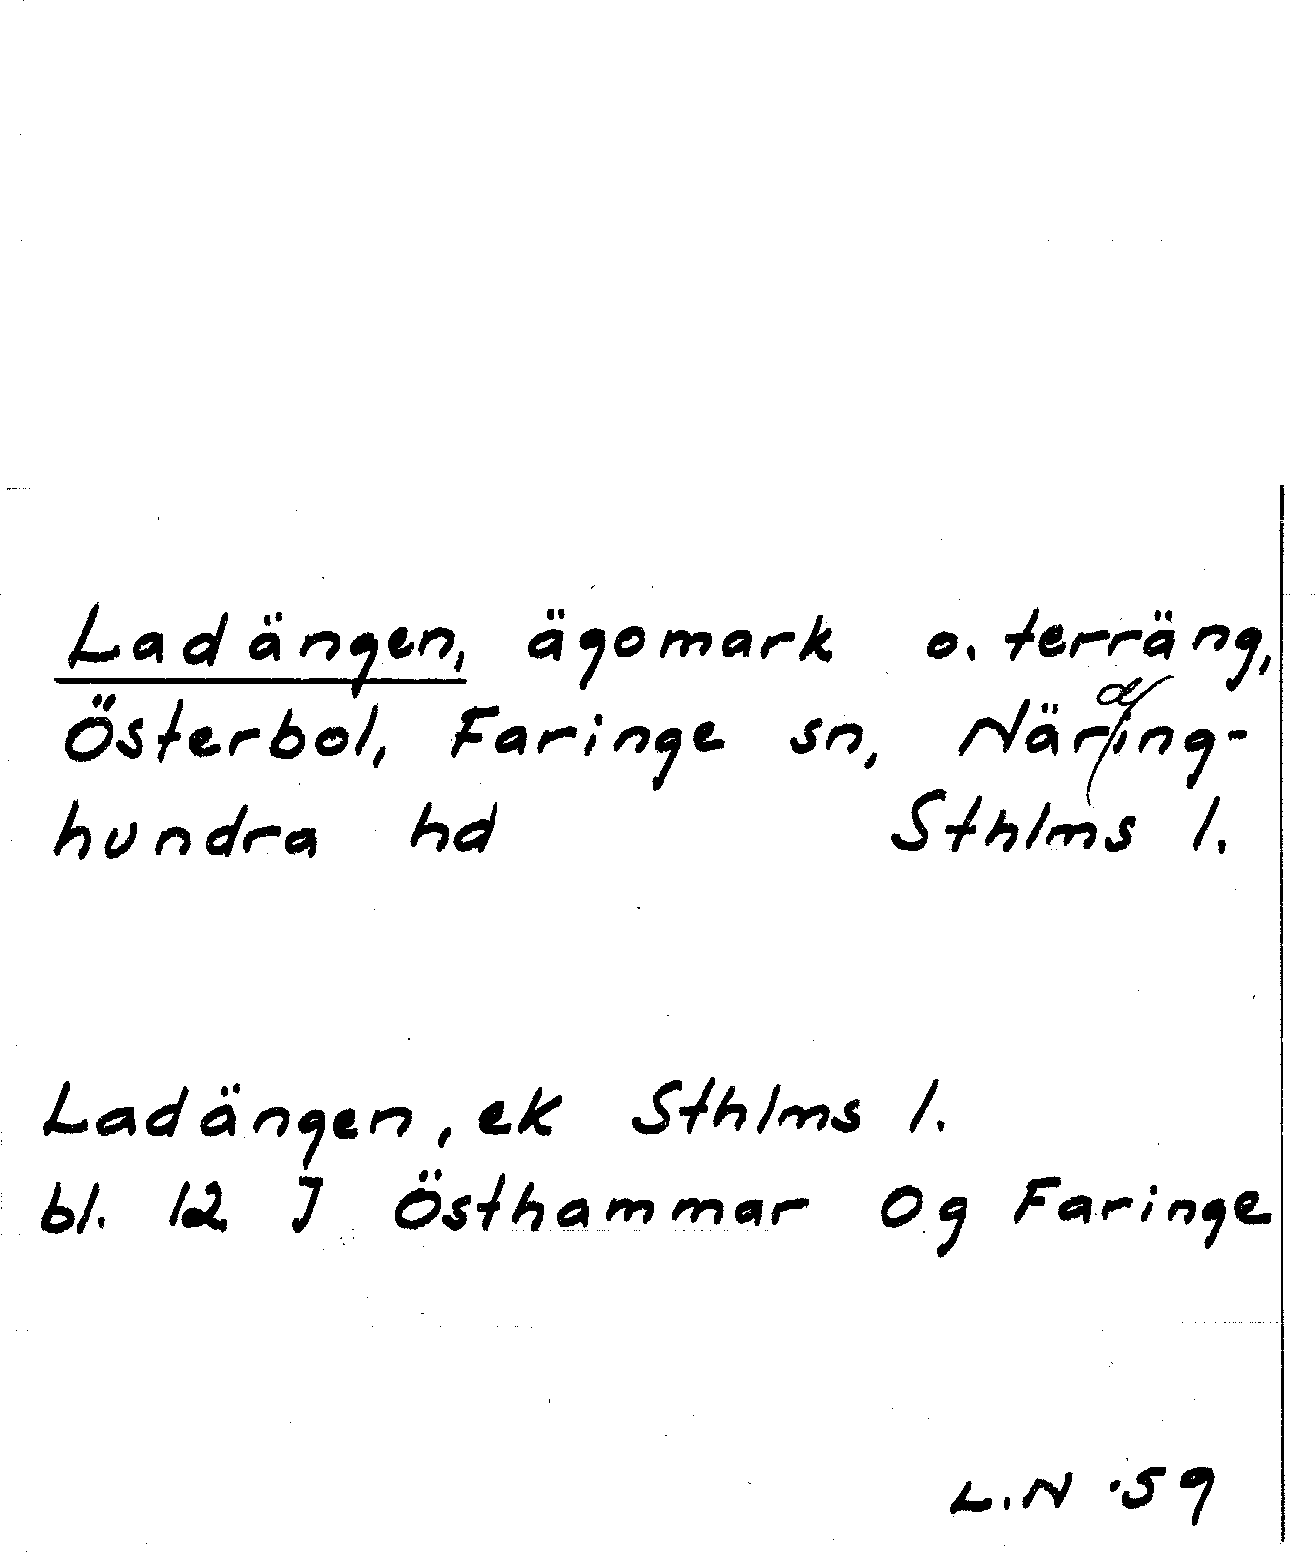 Ladängen, ägomark o. terräng,
Österbol, Faringe sn, Närding-
hundra hd Sthlms l.
Ladängen, ek Sthlms l.
bl. 12 J Östhammar Og Faringe
L.N -59